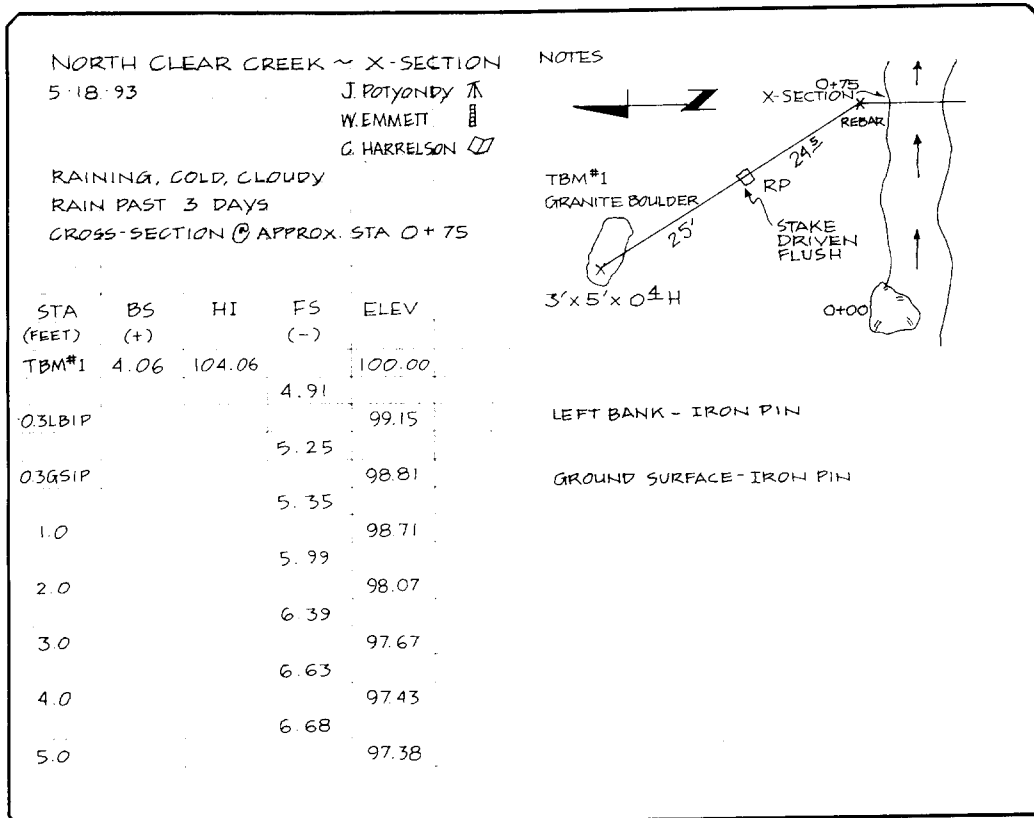 NORTH CLEAR CREEK ~ X-SECTION
5·18·93
J. POTYONDY
W. EMMETT
C. HARRELSON
RAINING, COLD, CLOUDY
RAIN PAST 3 DAYS
CROSS-SECTION @ APPROX. STA 0+75
STA BS HI FS ELEV
(FEET) (+) (-)
TBM#1 4.06 104.06 100.00
4.91
0.3LBIP 99.15
5.25
0.3GSIP 98.81
5.35
1.0 98.71
5.99
2.0 98.07
6.39
3.0 97.67
6.63
4.0 97.43
6.68
5.0 97.38
NOTES
0+75
X-SECTION
REBAR
24.5
TBM#1
RP
GRANITE BOULDER
25'
STAKE
DRIVEN
FLUSH
3'x5'x0.4H
0+00
LEFT BANK - IRON PIN
GROUND SURFACE - IRON PIN